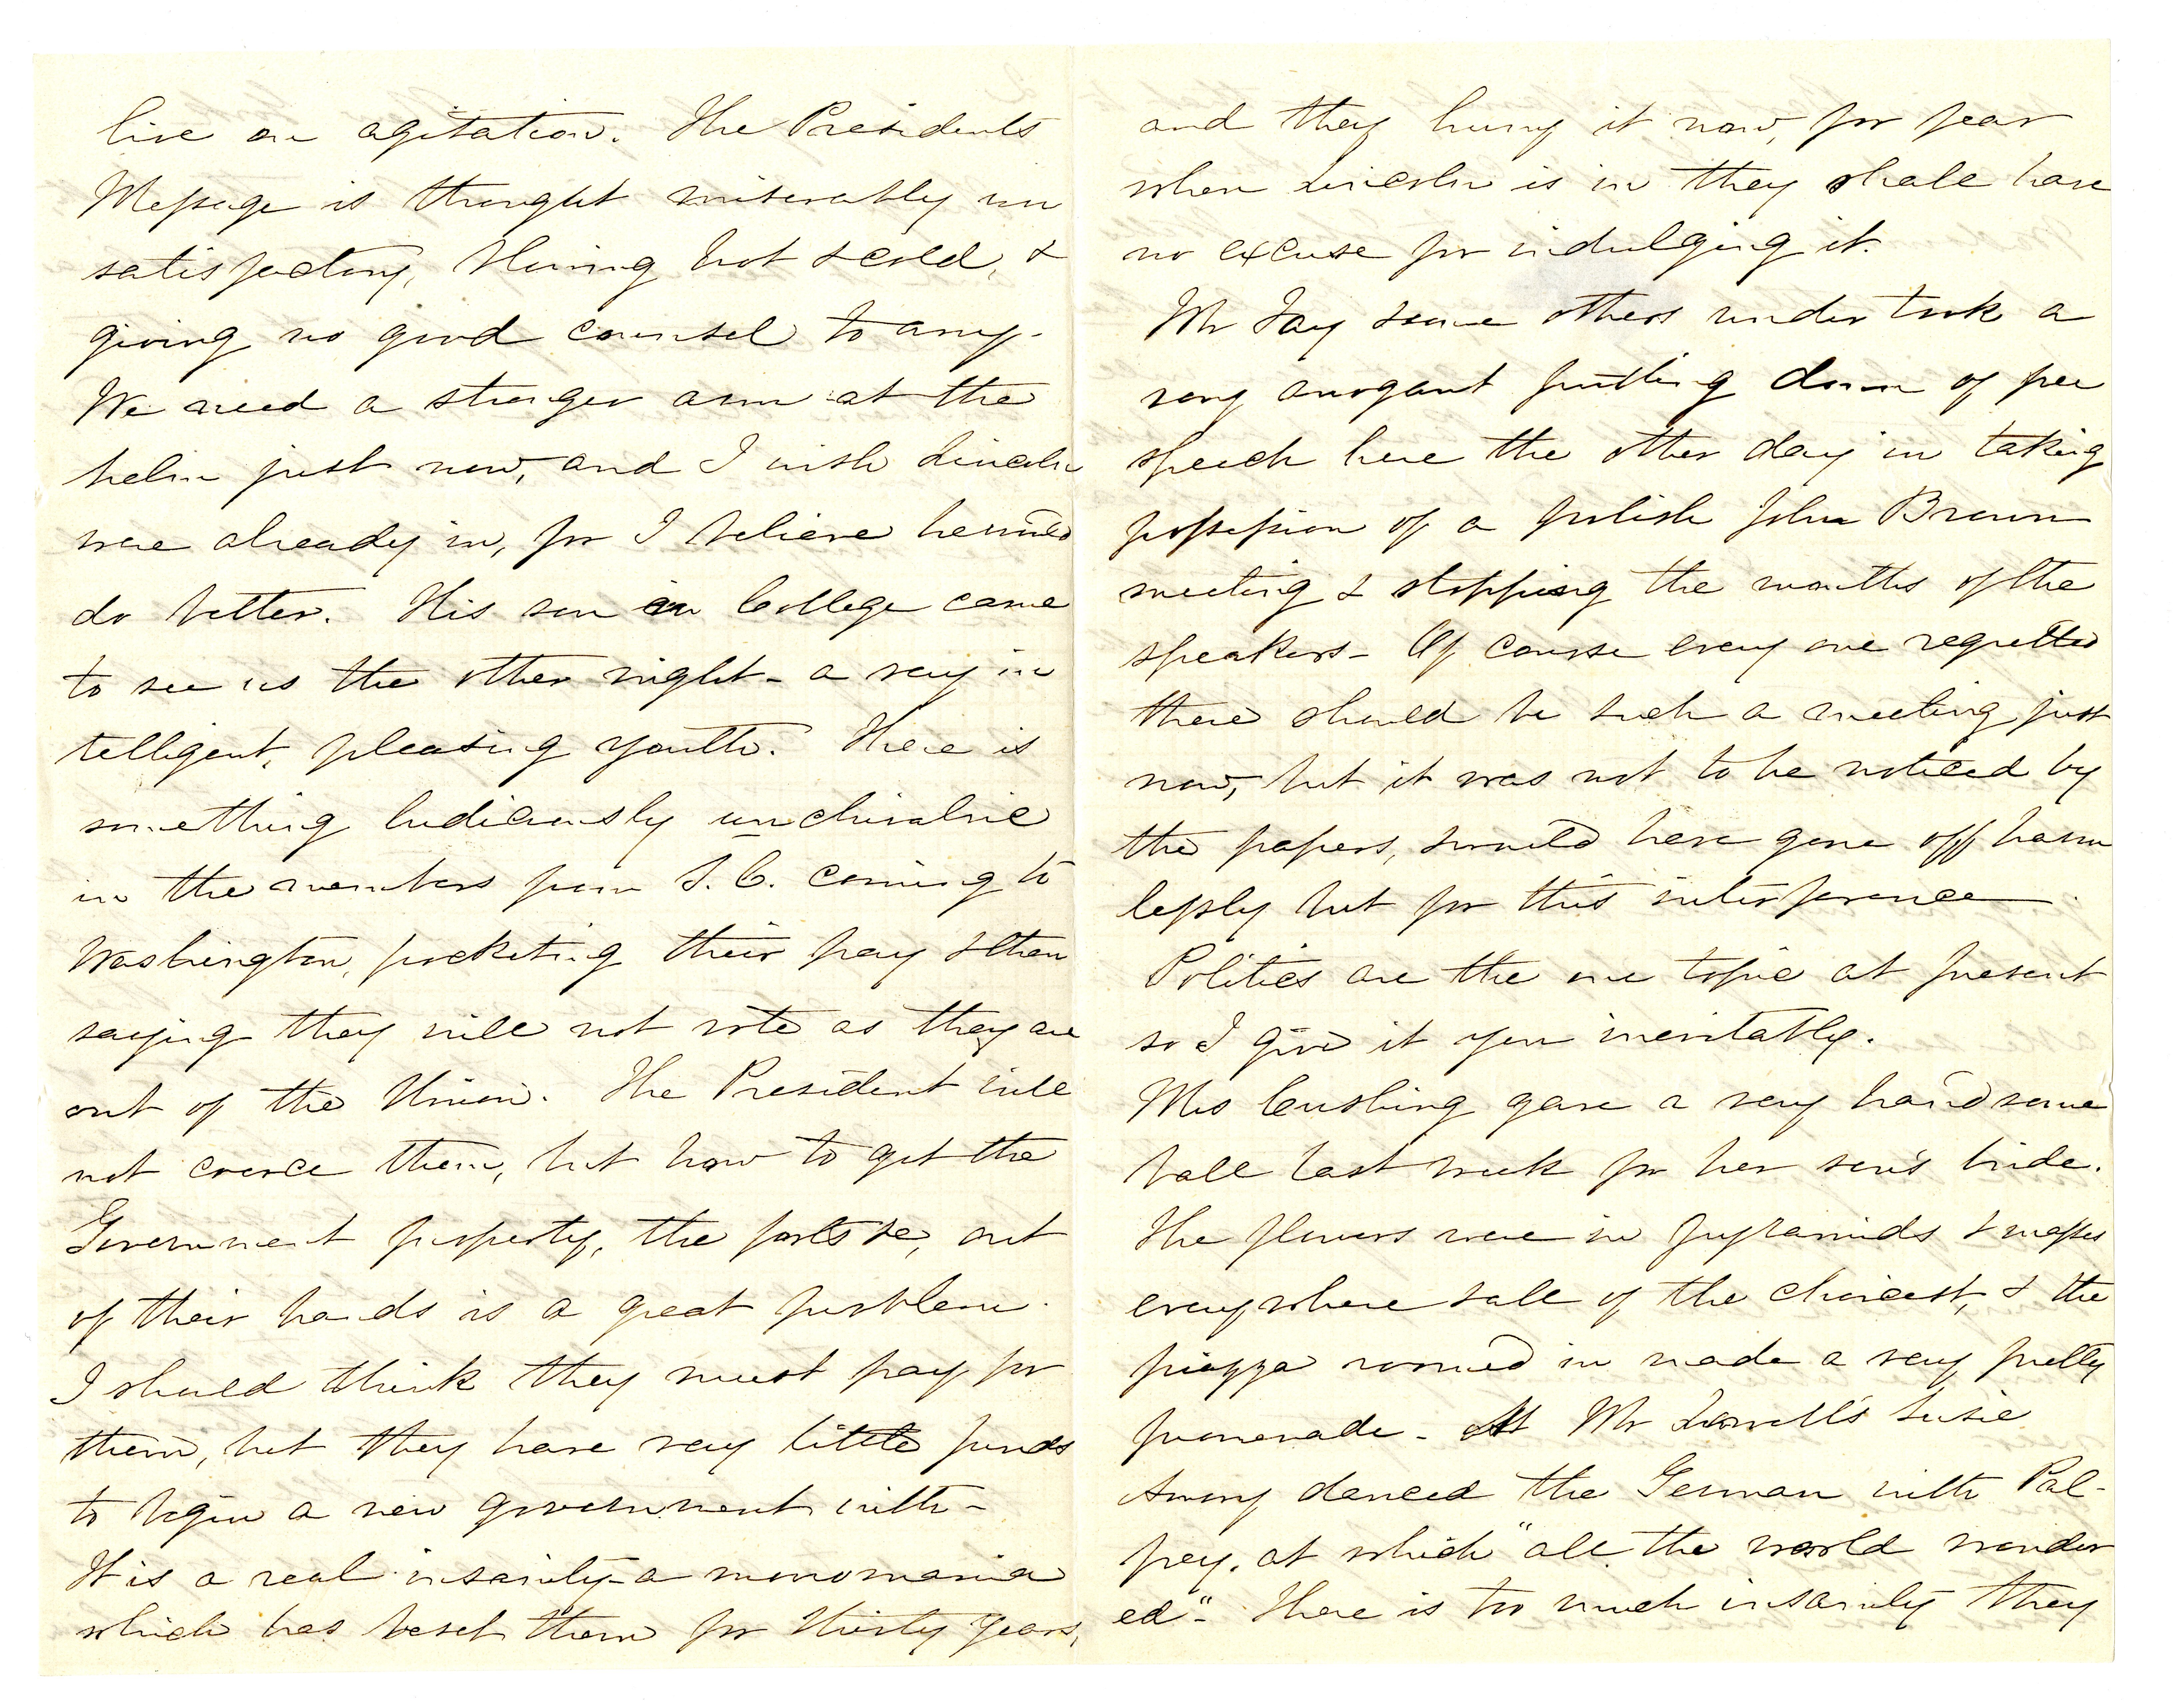 live on agitation. The Presidents
Message is thought miserably un
satisfactory, blowing hot & cold, &
giving no good counsel to any.
We need a stronger arm at the
helm just now, and I wish Lincoln
were already in, for I believe he would
do better. His son in College came
to see us the other night - a very in
telligent, pleasing youth. There is
something ludicrously unchivalric
in the members from S. C. coming to
Washington, pocketing their pay & then
saying they will not vote as they are
out of the Union. The President will
not coerce them, but how to get the
Government property, the forts &c, out
of their hands is a great problem.
I should think they must pay for
them, but they have very little funds
to begin a new government with -
It is a real insanity - a monomania
which has beset them for thirty years,
and they hurry it now, for fear
when Lincoln is in they shall have
no excuse for indulging it.
Mr Fay & some others undertook a
very arrogant putting down of free
speech here the other day in taking
possession of a foolish John Brown
meeting & stopping the mouths of the
speakers - Of course every one regretted
there should be such a meeting just
now, but it was not to be noticed by
the papers, & would have gone off harm
lessly but for this interference.
Politics are the one topic at present
so I give it you inevitably.
Mrs Cushing gave a very handsome
ball last week for her son's bride.
The flowers were in pyramids & masses
everywhere & all of the choicest, & the
piazza roomed in made a very pretty
promenade - At Mr Lowell's Susie
Amory danced the German with Pal-
frey, at which "all the world wonder
ed" - There is too much insanity they